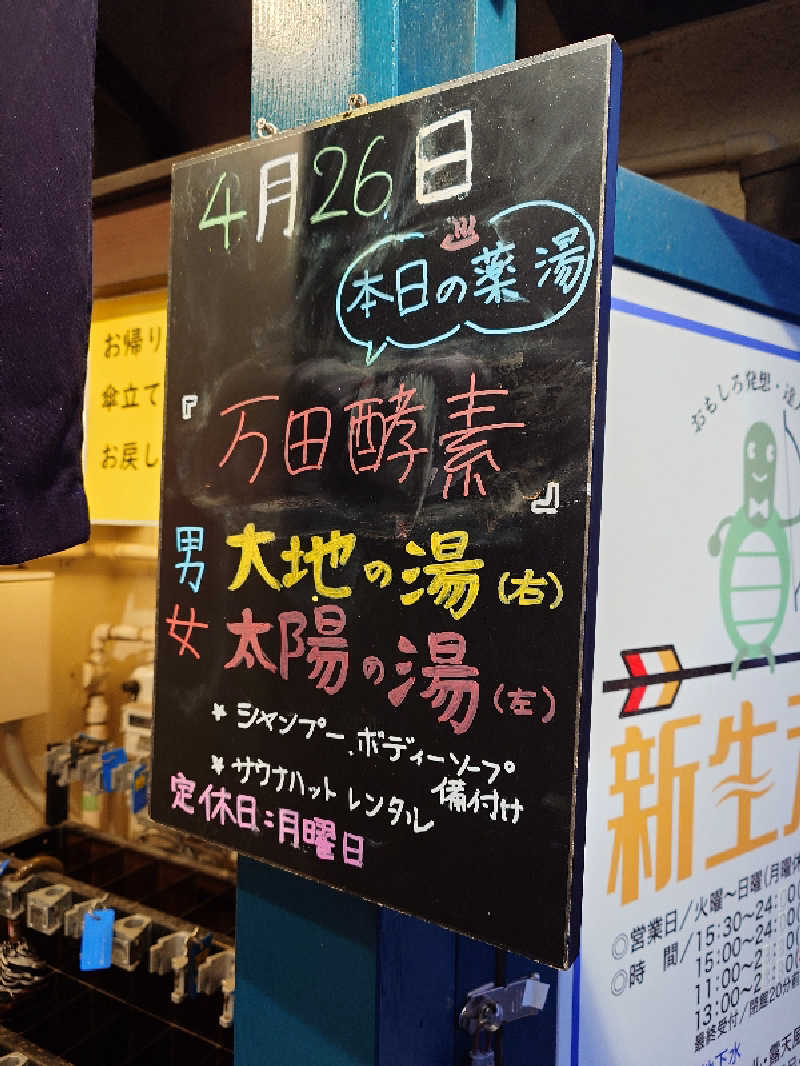 4月26日
本日の薬湯
『万田酵素』
男 大地の湯(右)
女 太陽の湯(左)
* シャンプー、ボディーソープ
備付け
* サウナハット レンタル
定休日:月曜日
お帰り
傘立て
お戻し
おもしろ発想・
新生
◎営業日/火曜〜日曜(月曜休
◎時 間/15:30〜24:0
15:00〜24:
11:00〜2
13:00〜2
最終受付/閉館20分前
地下水
露天風